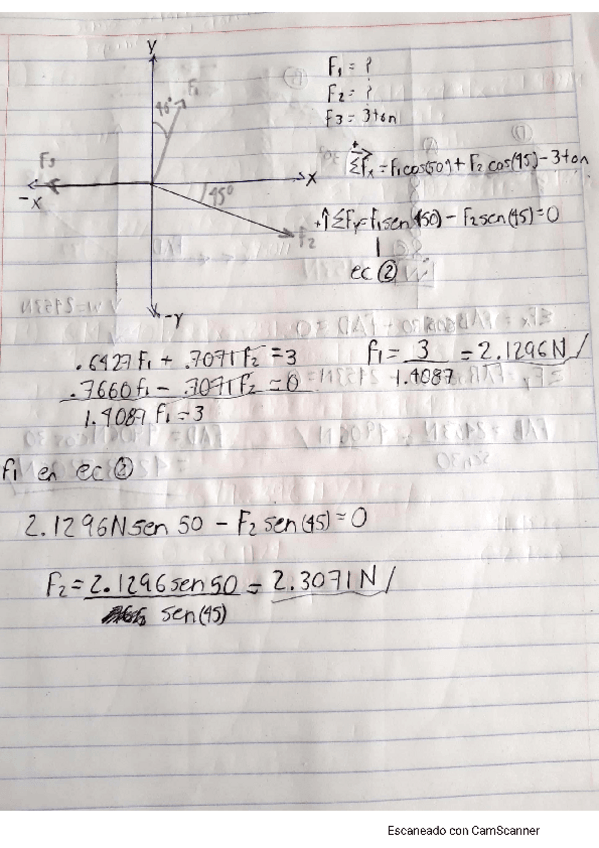 y
F₁
40°
F₁ = ?
F₂ = ?
F₃ = 3ton
F₃
-x
x
45°
F₂
-y
+→ ΣFx = F₁cos(50°)+ F₂ cos(45)-3ton
+↑ΣFy=F₁sen(50) - F₂sen(45)=0
ec②
.6427F₁ + .7071F₂ = 3
.7660F₁ - .7071F₂ = 0
1.4087 F₁ = 3
F₁ = 3/1.4087 = 2.1296N/
F₁ en ec②
2.1296N sen 50 - F₂ sen(45)=0
F₂ = 2.1296sen50/sen(45) = 2.3071N/
Escaneado con CamScanner